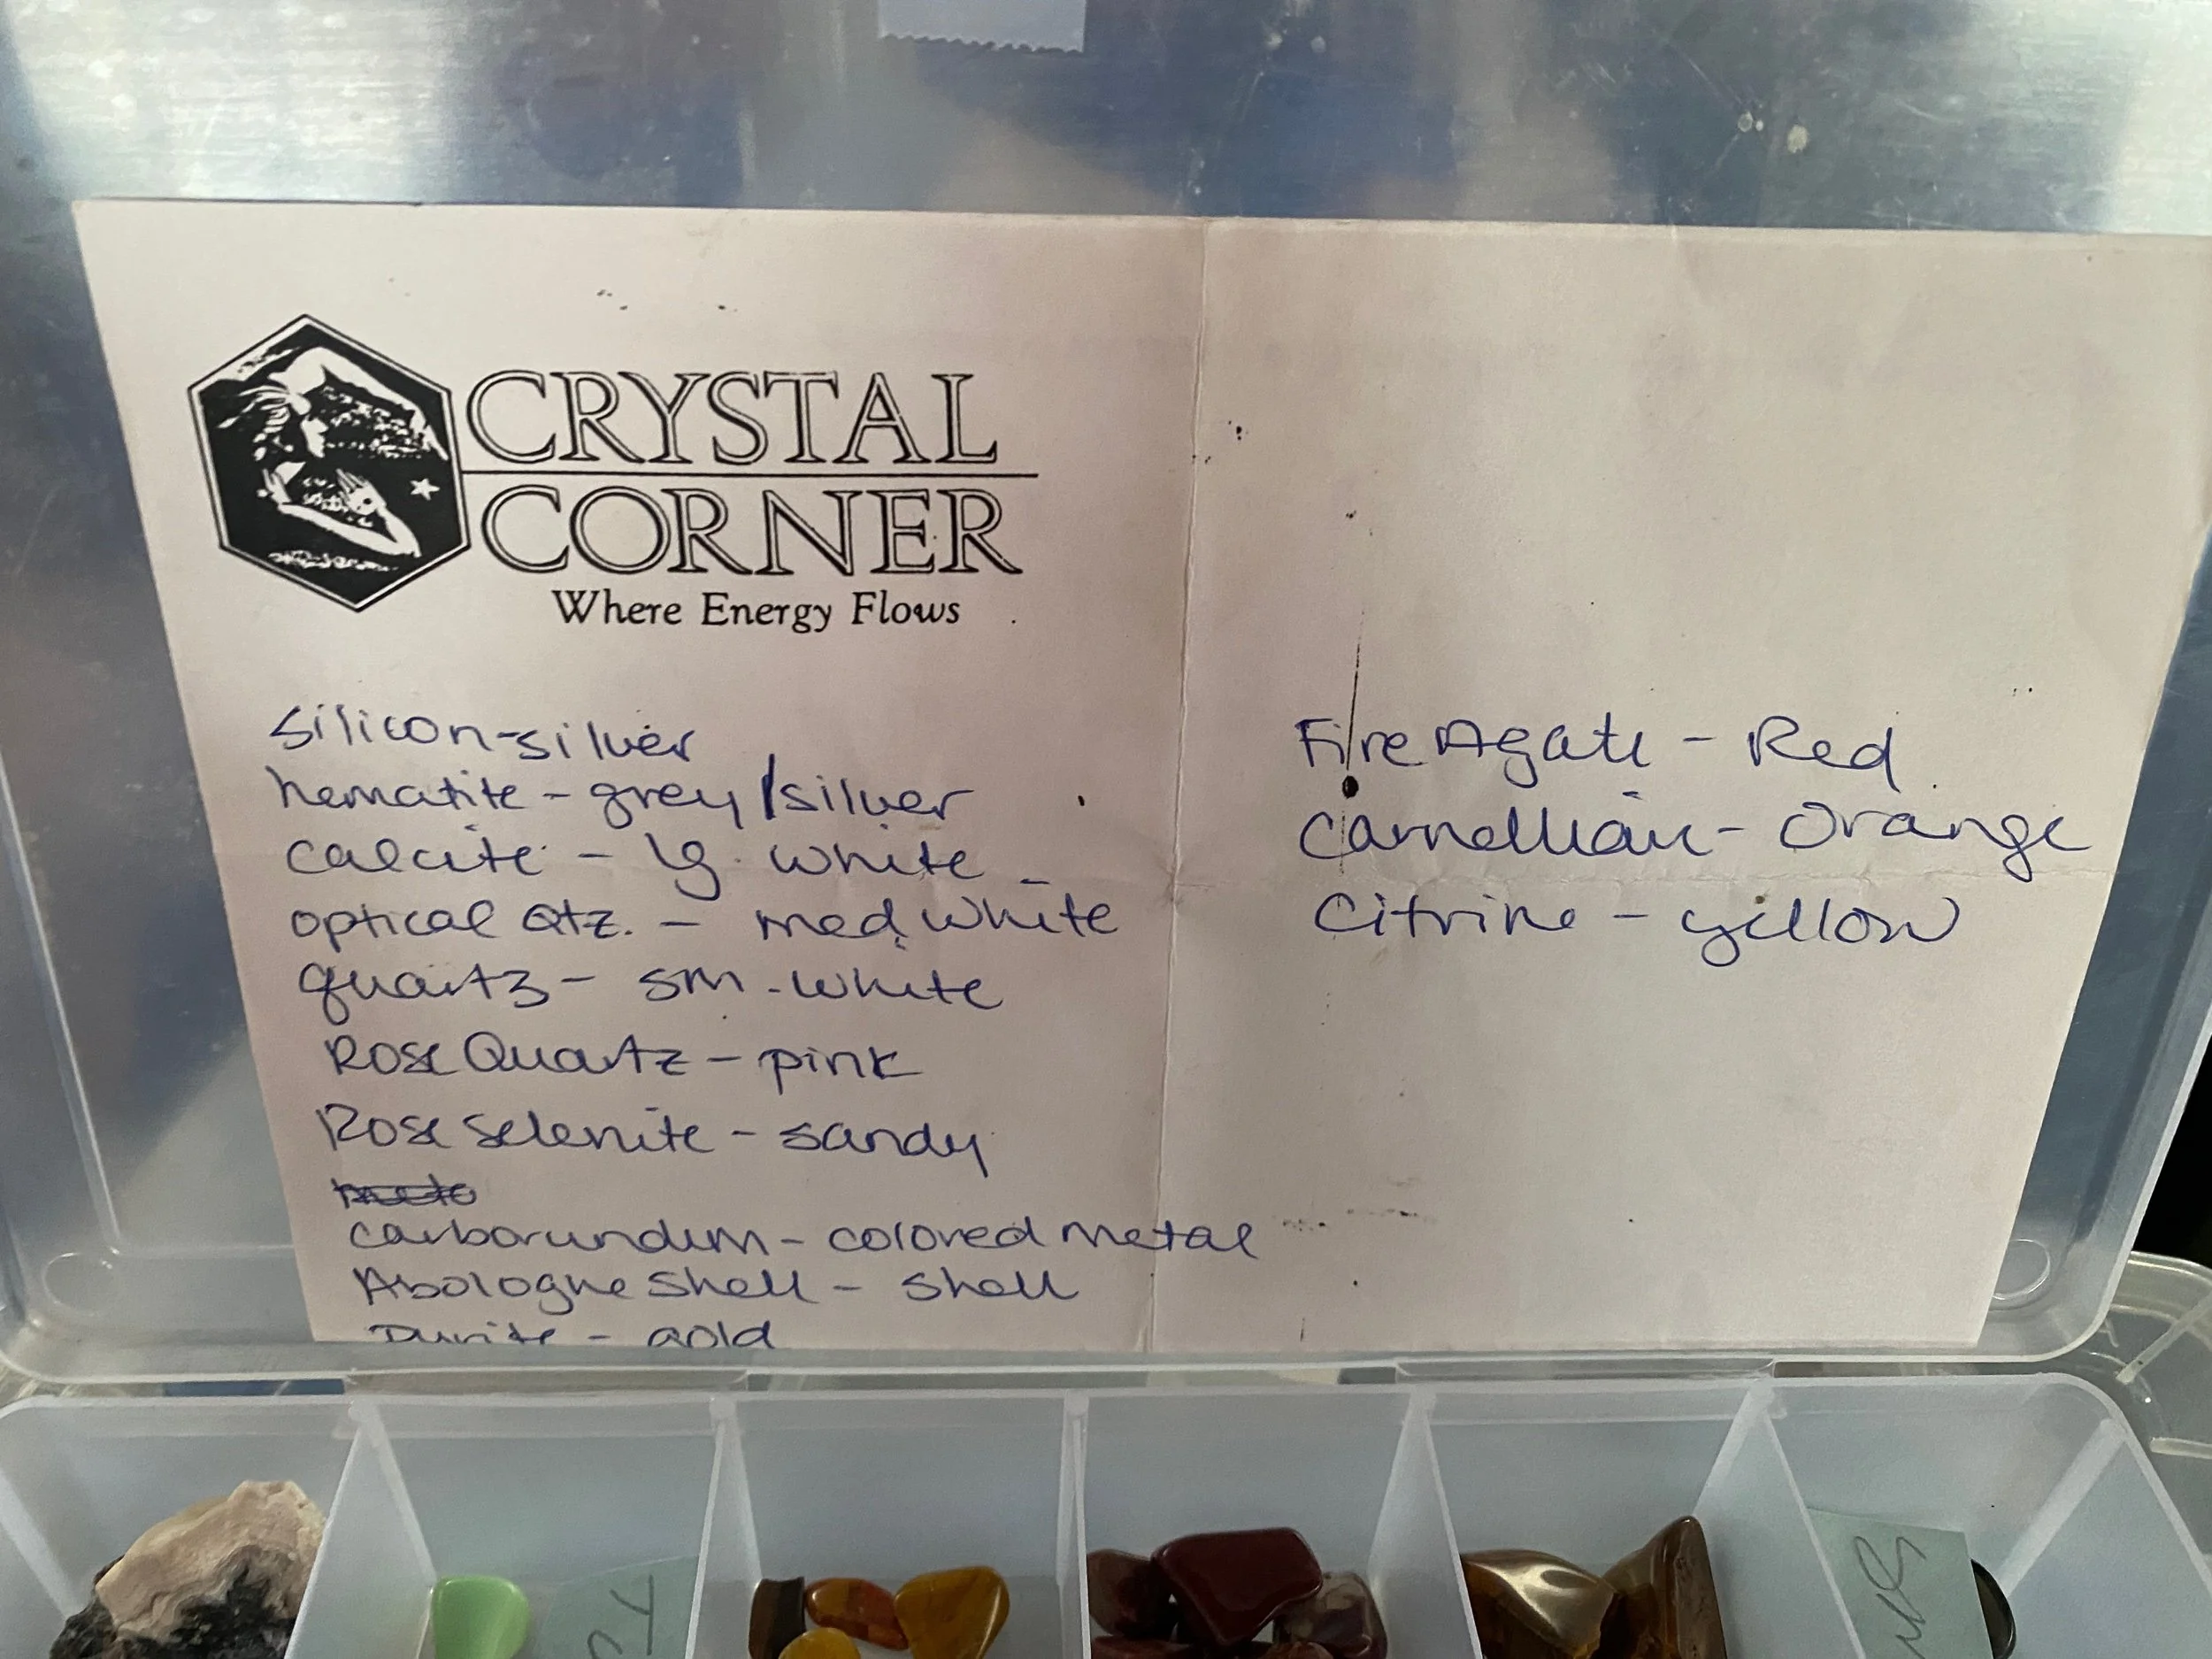 CRYSTAL
CORNER
Where Energy Flows
silicon-silver
hematite - grey/silver
calcite - lg. white
optical Qtz. - med. white
quartz - sm. white
Rose Quartz - pink
Rose Selenite - sandy
carborundum - colored metal
Abologne Shell - Shell
Pyrite - gold
Fire Agate - Red
Carnellian - Orange
Citrine - yellow